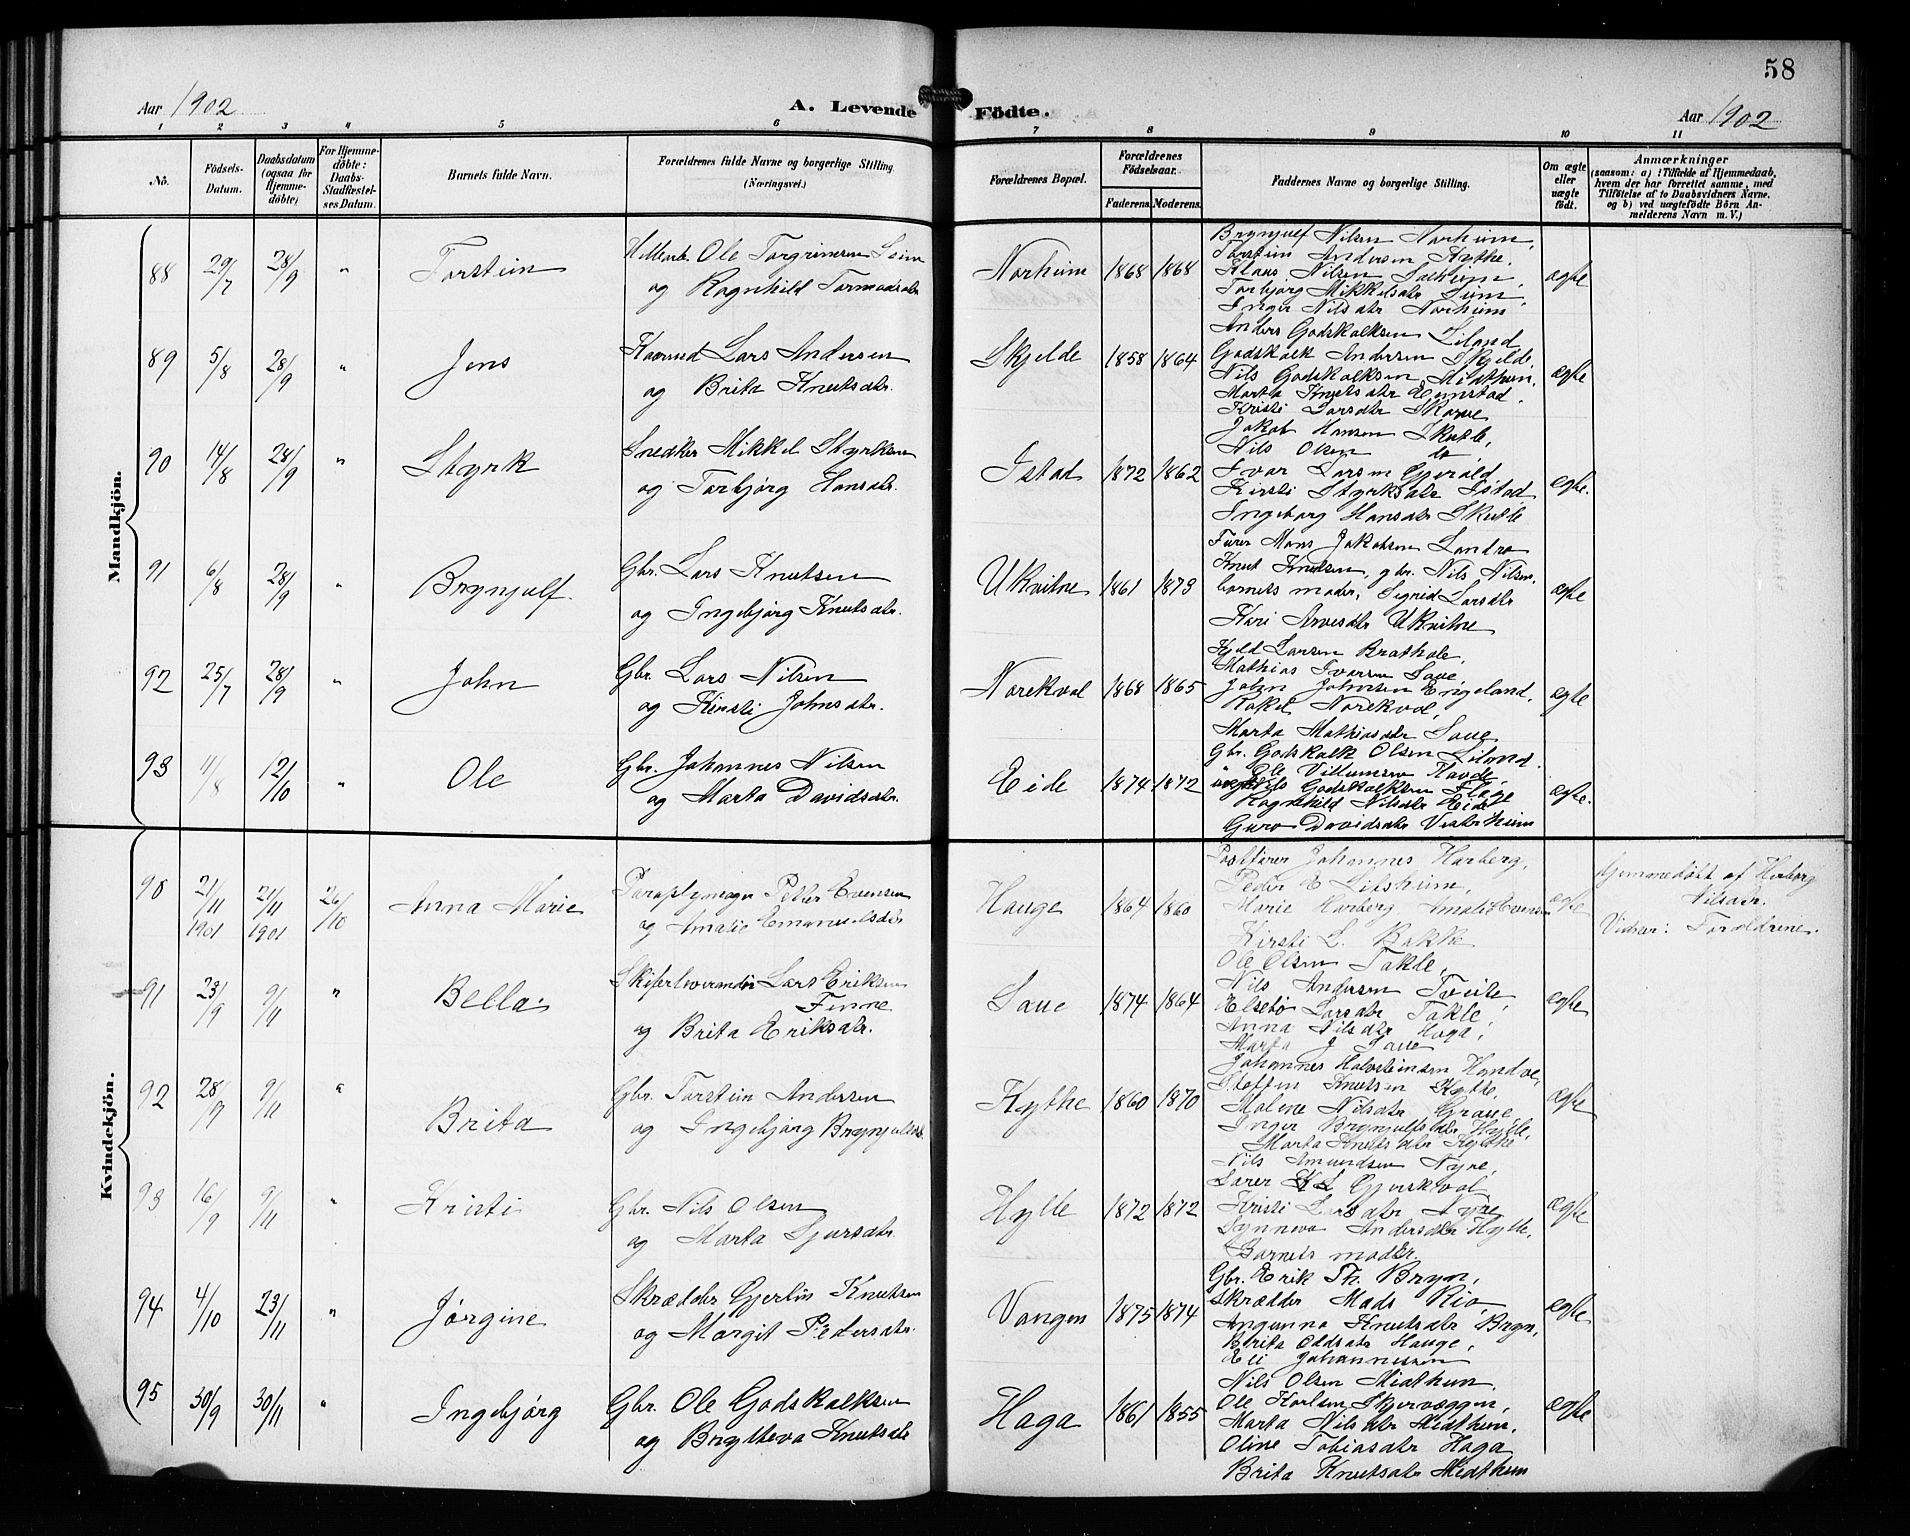 58
Aar 1902
A. Levende Födte.
Aar 1902
1 2 3 4 5 6 7 8 9 10 11
No.
Födsels-Datum.
Daabsdatum (ogsaa for Hjemme-döbte)
For Hjemme-döbte: Daabs-Stadfæstel-ses Datum.
Barnets fulde Navn.
Forældrenes fulde Navne og borgerlige Stilling
(Næringsvei.)
Forældrenes Bopæl.
Forældrenes Födselsaar.
Faderens. Moderens.
Faddernes Navne og borgerlige Stilling.
Om ægte eller uægte födt.
Anmærkninger
(saasom: a) i Tilfælde af Hjemmedaab, hvem der har forrettet samme, med Tilföielse af to Daabsvidners Navne, og b) ved uægtefödte Börn An-melderens Navn m. V.)
Mandkjön.
88 29/7 28/9 " Torstein
Ole Torgrimsen Seim
og Ragnhild Tormodsdtr
Norheim 1868 1868
Brynjulf Nilsen Norheim,
Torstein Andersen Kythe,
Klaus Nilsen Solheim,
Torbjørg Mikkelsdtr Seim,
Inger Nilsdtr Norheim
ægte
89 5/8 28/9 " Jens
Lars Andersen
og Brita Knutsdtr.
Skjelde 1858 1864
Anders Godskalksen Liland
Godskalk Andersen Skjelde,
Nils Godskalksen Midthun,
Marta Knutsdtr
Kristi Larsdtr
ægte
90 14/8 28/9 " Styrk
Snedker Mikkel Styrksen
og Torbjørg Hansdtr.
Istad 1872 1862
Jakob Hansen Skutle,
Nils Olsen do
Ivar Larsen Gjerald
Kirsti Styrksdtr Istad
Ingeborg Hansdtr Skutle
ægte.
91 6/8 28/9 " Brynjulf.
Gbr. Lars Knutsen
og Ingebjørg Knutsdtr.
Ukvitne 1861 1873
Mons Jakobsen Landro
Knut Knutsen, gbr. Nils Nilsen,
barnets moder, Sigrid Larsdtr
Kari Arvesdtr Ukvitne
ægte
92 25/7 28/9 " John
Gbr. Lars Nilsen
og Kirsti Johnsdtr.
Norekval 1868 1865
Kjeld Larsen Brathole,
Mathias Ivarsen Saue,
John Johnsen Engeland,
Rakel Norekval,
Marta Mathiasdtr Saue
ægte
93 11/8 12/10 " Ole
Gbr. Johannes Nilsen
og Marta Davidsdtr.
Eide 1874 1872
Gbr. Godskalk Olsen Liland
" Ole Villumsen
Nils Godskalksen
Ragnhild Nilsdtr Eide
Guro Davidsdtr
ægte.
Kvindekjön.
90 21/11 1901 21/11 1901 26/10 Anna Marie
Petter Evensen
og Amalie Emanuelsdtr
Hauge 1864 1860
Johannes Harberg,
Peder E Litsheim,
Marie Harberg Amalie Evensen
Kirsti L. Bakke
ægte
Hjemmedøbt af Herborg
Nilsdtr.
Vidner: Forældrene.
91 23/9 9/11 " Bella
Skiferleverandør Lars Eriksen
Finne
og Brita Eriksdtr.
Saue 1874 1864
Ole Olsen Takle,
Nils Andersen Tveite,
Elsebø Larsdtr Takle,
Anna Nilsdtr Haga,
Marta J Saue
ægte
92 28/9 9/11 " Brita
Gbr. Torstein Andersen
og Ingebjørg Brynjulfsdtr
Kythe 1860 1870
Johannes Halvsteinsen
Steffen Knutsen Kythe,
Malene Nilsdtr Graue,
Inger Brynjulfsdtr Hylle,
Marta Knutsdtr Kythe
ægte
93 16/9 9/11 " Kristi
Gbr. Nils Olsen
og Marta Sjursdtr
Hylle 1872 1872
Nils Amundsen Nyre,
Lærer K L Gjerskvol
Kristi Larsdtr Nyre
Synneva Andersdtr Hylle,
Barnets moder.
ægte
94 4/10 23/11 " Jørgine
Skrædder Gjerlin Knutsen
og Margit Pedersdtr.
Vangen 1875 1874
Gbr. Erik Th. Bryn,
Skrædder Mads Rio,
Ingunna Knutsdtr Bryn,
Brita Oddsdtr Hauge,
Eli Johannesen
ægte
95 30/9 30/11 " Ingebjørg
Gbr. Ole Godskalksen
og Brytteva Knutsdtr
Haga 1861 1855
Nils Olsen Midthun,
Ole Karlsen Skjervæggen,
Marta Nilsdtr Midthun,
Oline Tobiasdtr Haga
Brita Knutsdtr Midthun
ægte